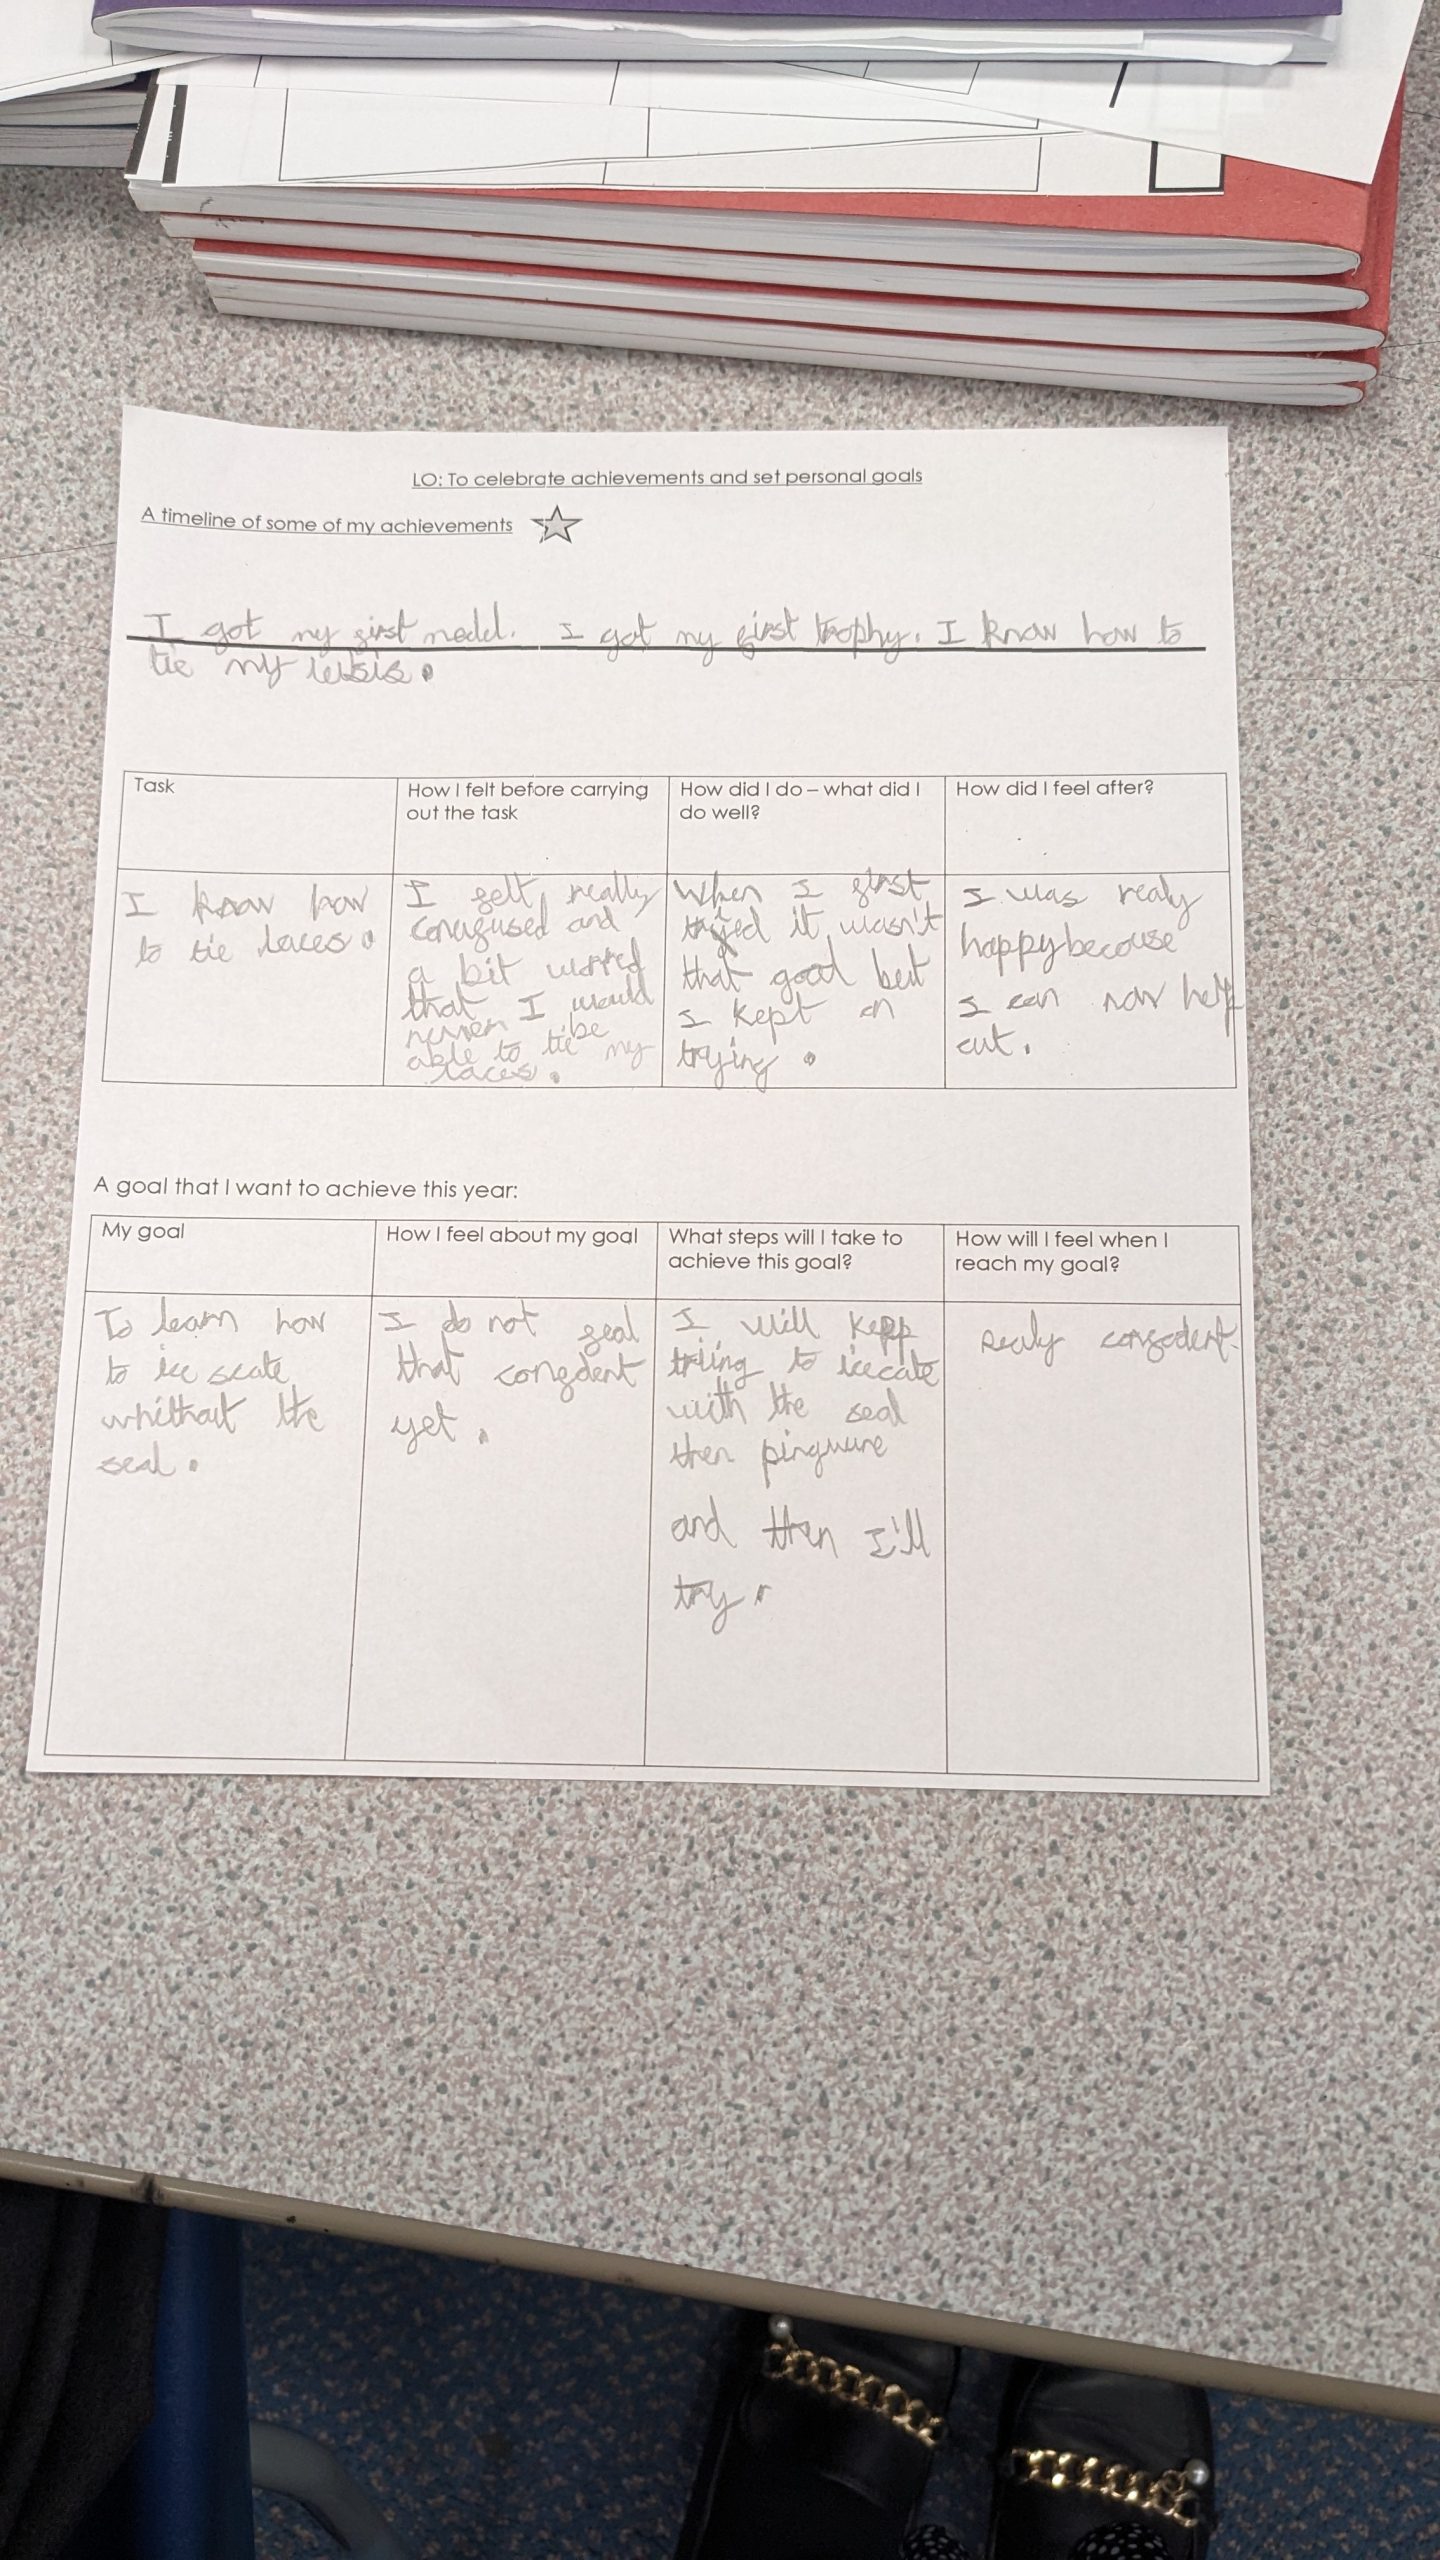 LO: To celebrate achievements and set personal goals
A timeline of some of my achievements
I got my first medel. I got my first trophy. I know how to
tie my
Task
How I felt before carrying
out the task
How did I do – what did I
do well?
How did I feel after?
I know how
to tie laces.
I felt really
confused and
a bit worred
that I would
never be
able to tie my
laces.
When I first
tryed it wasn't
that good but
I kept on
trying.
I was realy
happy because
I can now help
out.
A goal that I want to achieve this year:
My goal
How I feel about my goal
What steps will I take to
achieve this goal?
How will I feel when I
reach my goal?
To learn how
to ice scate
whithout the
seal.
I do not feal
that confdent
yet.
I will kepp
triing to icecate
with the seal
then pingwine
and then I'll
try.
Realy confodent.